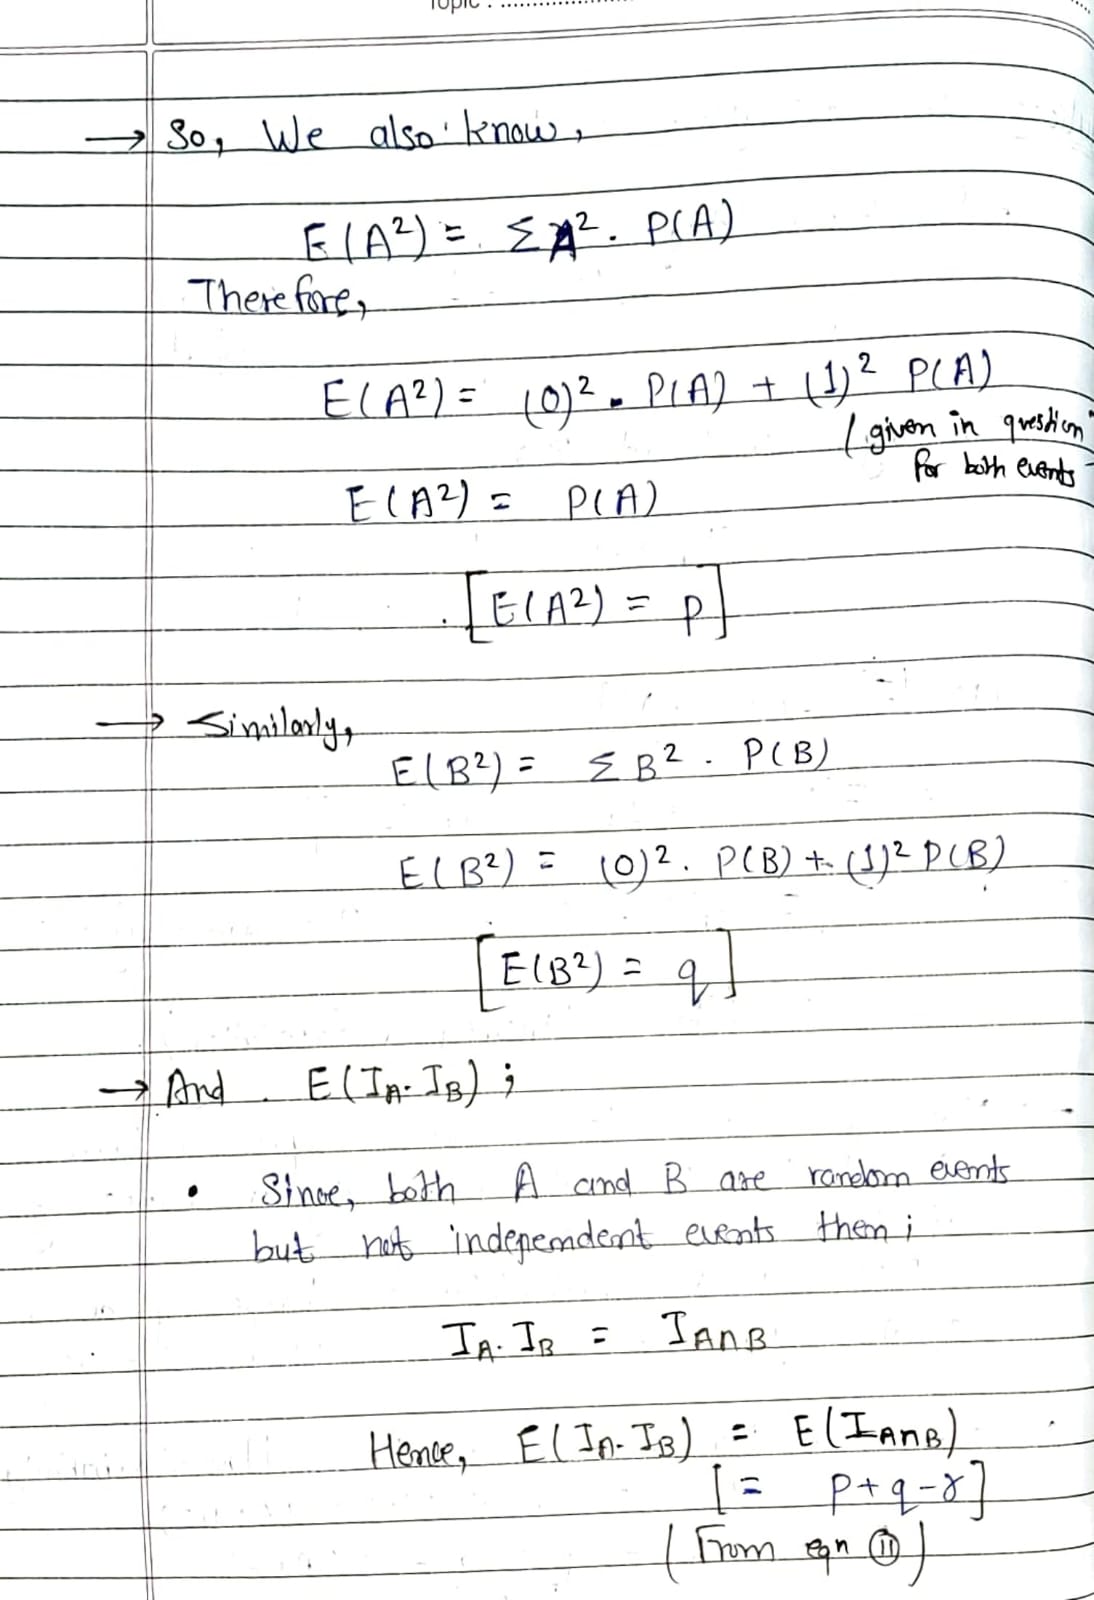 Topic : ..................
→ So, We also know,
E(A²) = Σ A². P(A)
Therefore,
E(A²) = (0)². P(A) + (1)² P(A)
(given in question
for both events
E(A²) = P(A)
[E(A²) = p]
→ Similarly,
E(B²) = Σ B². P(B)
E(B²) = (0)². P(B) + (1)² P(B)
[E(B²) = q]
→ And E(I_A. I_B) ;
• Since, both A and B are random events
but not independent events then ;
I_A. I_B = I_A∩B
Hence, E(I_A. I_B) = E(I_A∩B)
[= p+q-r]
(From eqn ⑪)